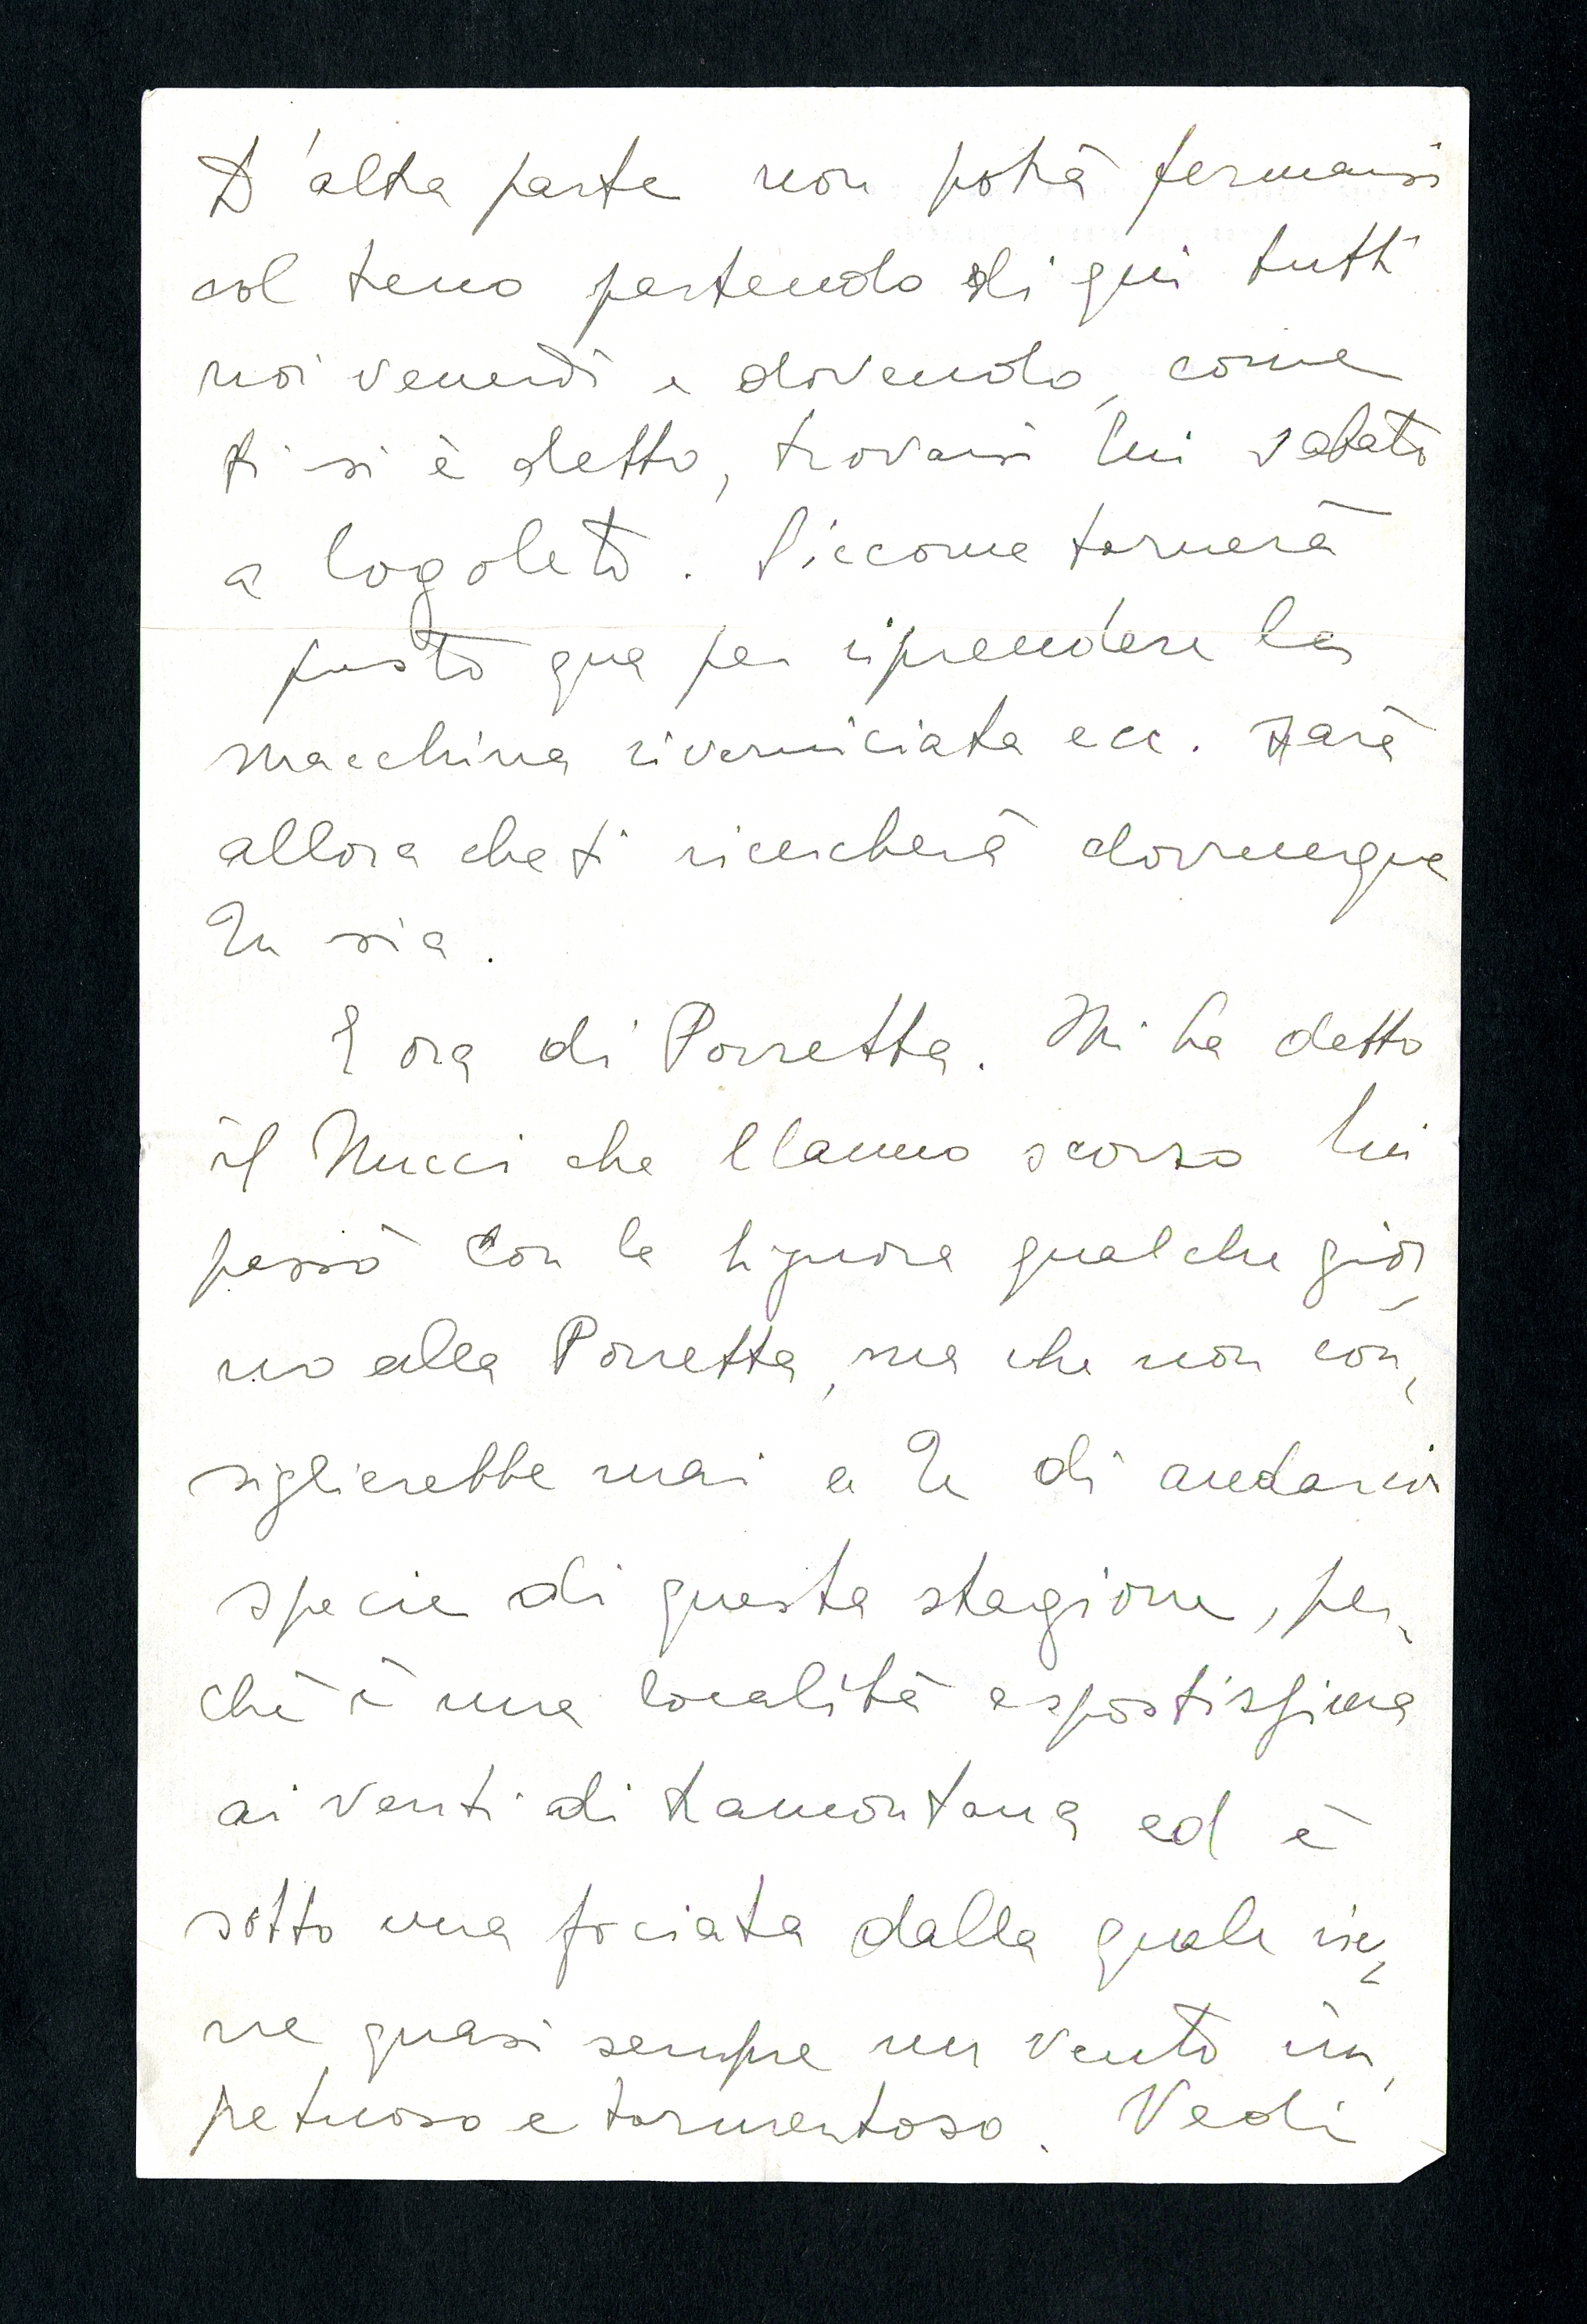 D'altra parte non potrà fermarsi
col treno partendo di qui tutti
noi venerdì e dovendo, come
ti si è detto, trovarsi lui sabato
a Cogoleto. Siccome tornerà
presto qua per riprendere la
macchina riverniciata ecc. sarà
allora che ti ricercherà dovunque
Tu sia.
E ora di Porretta. Mi ha detto
il Nucci che l'anno scorso lui
passò con la Signora qualche gior-
no alla Porretta, ma che non con-
siglierebbe mai a Te di andarci
specie di questa stagione, per-
chè è una località espostissima
ai venti di tramontana ed è
sotto una fociata dalla quale vie-
ne quasi sempre un vento im-
petuoso e tormentoso. Vedi